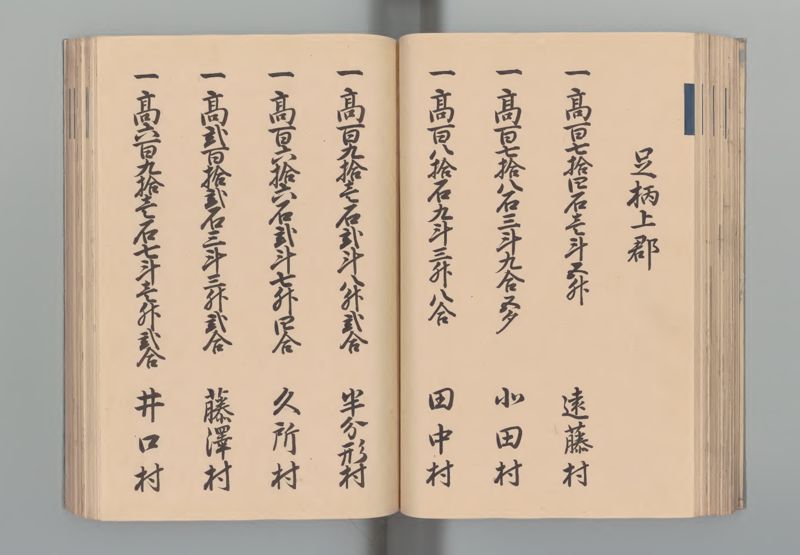 足柄上郡
一高百七拾四石壱斗五升 遠藤村
一高百七拾八石三斗九合五夕 北田村
一高百八拾石九斗三升八合 田中村
一高百九拾壱石弐斗八升弐合 半分形村
一高百六拾六石弐斗七升四合 久所村
一高弐百拾弐石三斗三升弐合 藤澤村
一高六百九拾壱石七斗壱升弐合 井口村